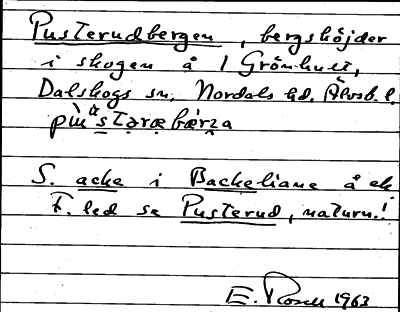 Pusterudbergen, bergshöjder
i skogen å 1 Grönhult,
Dalskogs sn. Nordals hd. Älvsb. l.
S. acke i Backeliane å ek
F. led se Pusterud, naturn.!
E. Rosell 1963